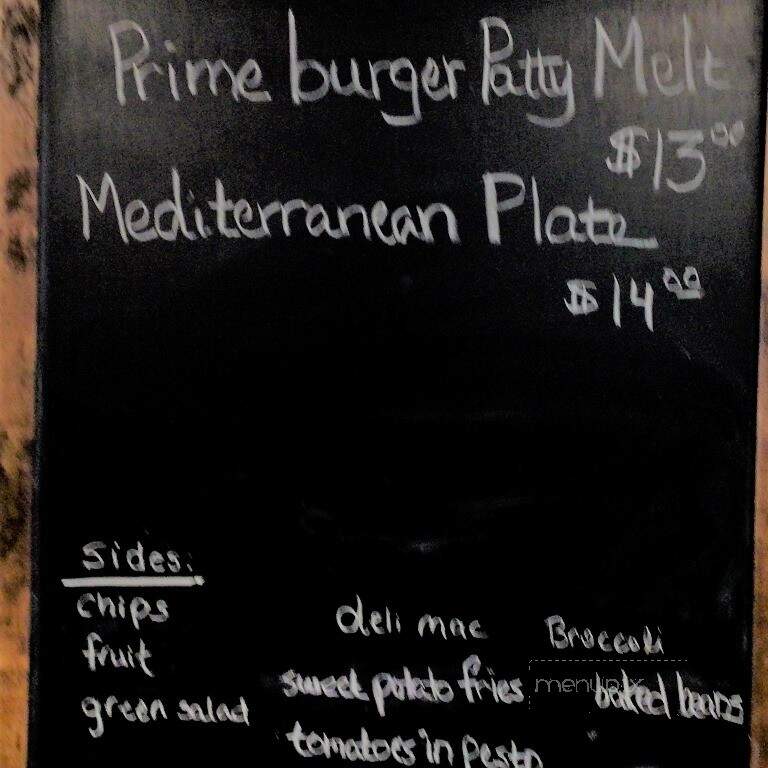 Prime burger Patty Melt
$13.00
Mediterranean Plate
$14.00
Sides:
chips
fruit
green salad
deli mac
sweet potato fries
tomatoes in pesto
Broccoli
baked beans
menupix